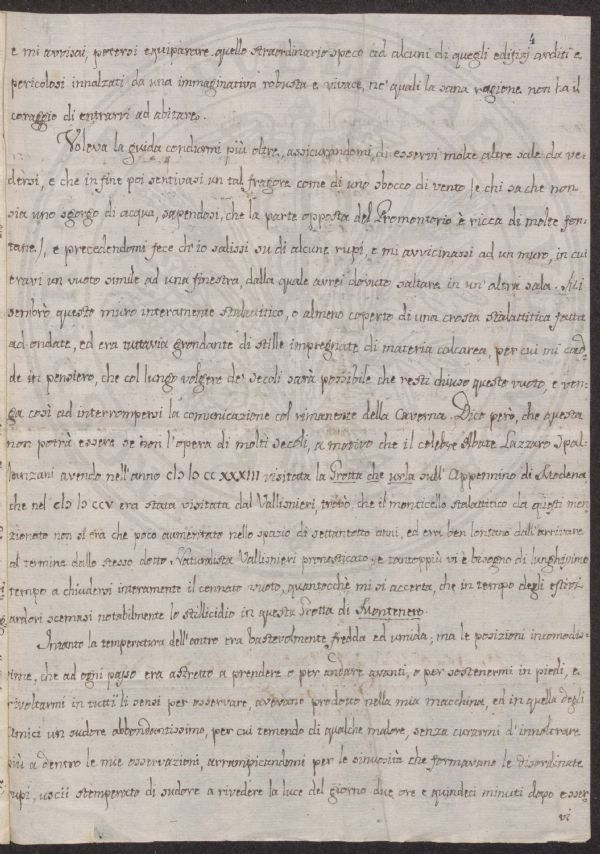 4
e mi avvisai, potersi equiparare quello straordinario speco ad alcuni di quegli edifizj arditi e
pericolosi innalzati da una immaginativa robusta e vivace, ne' quali la sana ragione non ha il
coraggio di entrarvi ad abitare.
Voleva la guida condurmi più oltre, assicurandomi, di esservi molte altre sale da ve-
dersi, e che in fine poi sentivasi un tal fragore come di uno sbocco di vento /e chi sa che non
sia uno sgorgo di acqua, sapendosi, che la parte opposta del Promontorio è ricca di molte fon-
tane/, e precedendomi fece ch'io salissi su di alcune rupi, e mi avvicinassi ad un muro, in cui
eravi un vuoto simile ad una finestra, dalla quale avrei dovuto saltare in un' altra sala. Mi
sembrò questo muro interamente stalattitico, o almeno coperto di una crosta stalattitica fatta
ad ondate, ed era tuttavia grondante di stille impregnate di materia calcarea, per cui mi cad-
de in pensiero, che col lungo volgere de' secoli sarà possibile che resti chiuso questo vuoto, e ven-
ga così ad interrompersi la comunicazione col rimanente della Caverna. Dico però, che questa
non potrà essere se non l'opera di molti secoli, a motivo che il celebre Abate Lazzaro Spal-
lanzani avendo nell'anno CIↃ IↃ CC XXXIII visitata la Grotta che urla sull' Appennino di Modena
che nel CIↃ IↃ CCV era stata visitata dal Vallisnieri, trovò, che il monticello stalattitico da questi men-
zionato non si era che poco aumentato nello spazio di settantotto anni, ed era ben lontano dall'arrivare
al termine dallo stesso dotto Naturalista Vallisnieri pronosticato; e tantoppiù vi è bisogno di lunghissimo
tempo a chiudersi interamente il cennato vuoto, quantocchè mi si accerta, che in tempo degli estivi
ardori scemasi notabilmente lo stillicidio in questa Grotta di Montenero.
Intanto la temperatura dell'antro era bastevolmente fredda ed umida; ma le posizioni incomodis-
sime, che ad ogni passo era astretto a prendere o per andare avanti, o per sostenermi in piedi, e
rivoltarmi in tutti li sensi per osservare, avevano prodotto nella mia macchina, ed in quella degli
Amici un sudore abbondantissimo, per cui temendo di qualche malore, senza curarmi d'innoltrare
più a dentro le mie osservazioni, arrampicandomi per le sinuosità che formavano le disordinate
rupi, uscii stemperato di sudore a rivedere la luce del giorno due ore e quindici minuti dopo esser-
vi